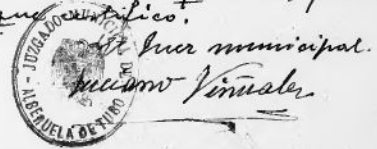 que certifico.
El Juez municipal.
Luciano Viñuales
JUZGADO MUNICIPAL DE
ALBERUELA DE TUBO